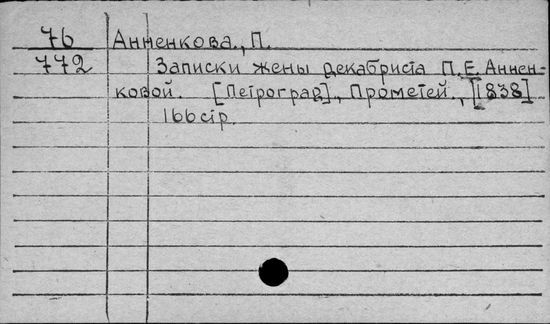 76 Анненкова., П.
772 Записки жены декабриста П.Е. Аннен-
ковой. [Петроград]., Прометей., [1838]
166 стр.